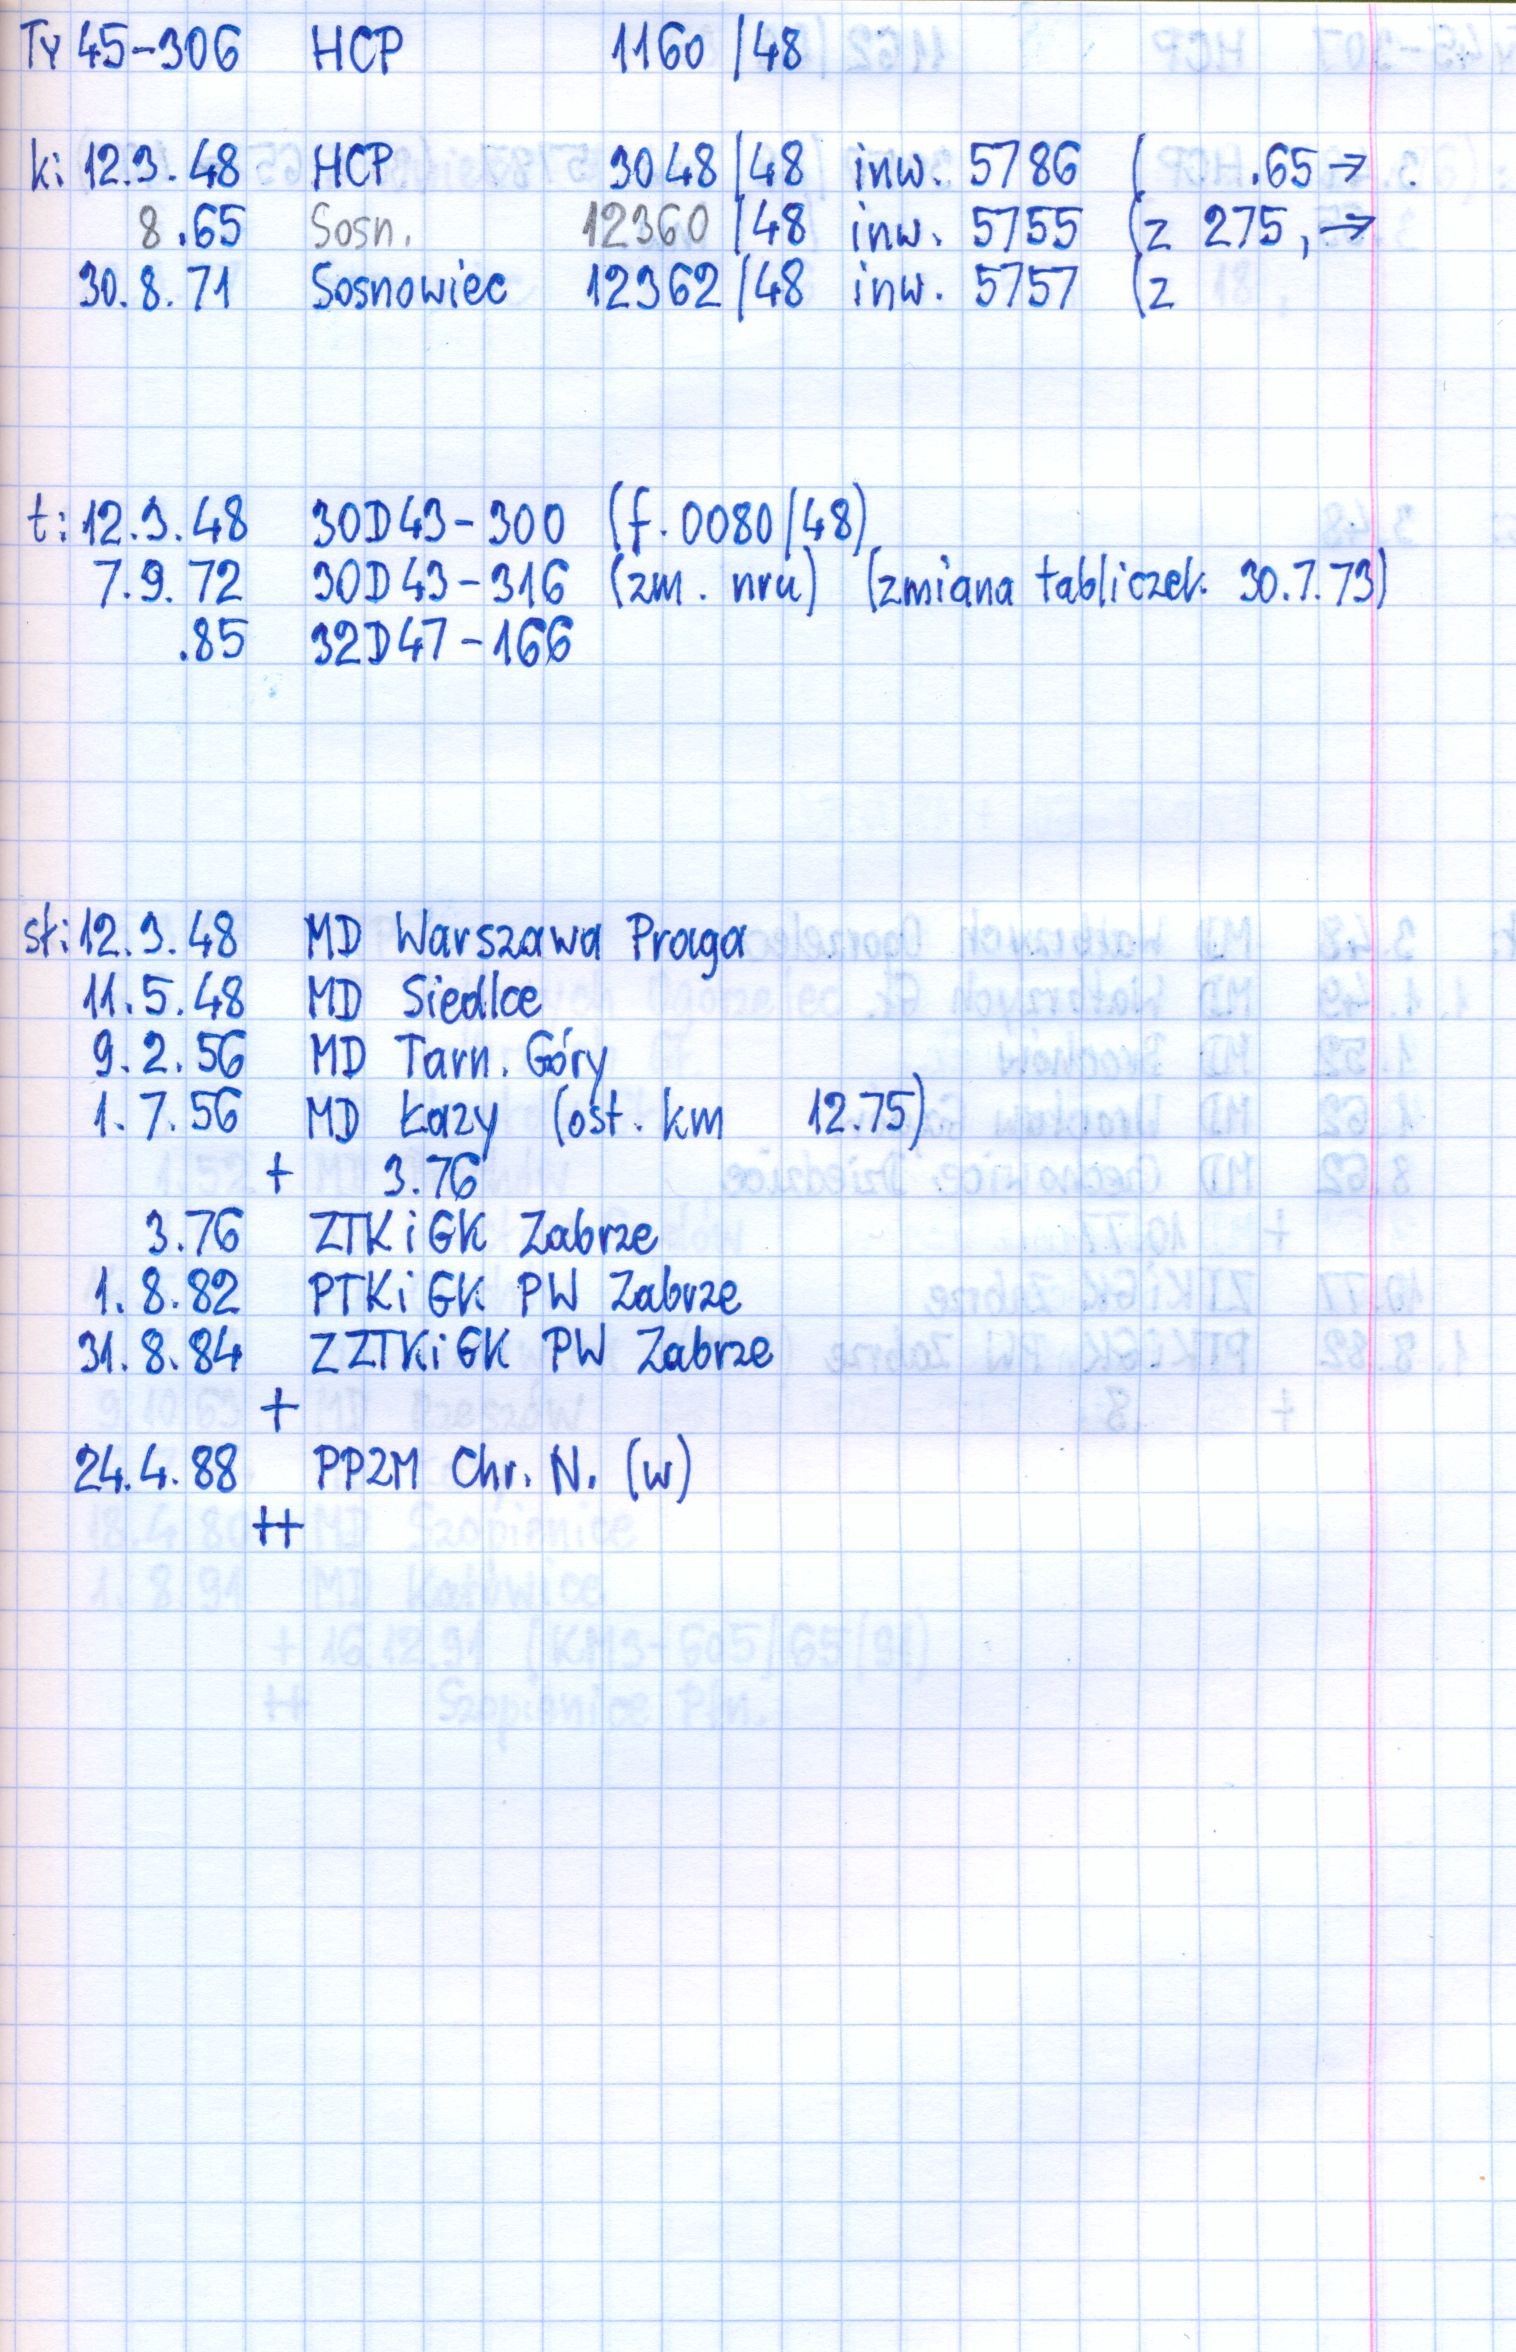 Ty 45-306 HCP 1160/48
k: 12.3.48 HCP 3048/48 inw. 5786 ( .65→
8.65 Sosn. 12360/48 inw. 5755 (z 275,→
30.8.71 Sosnowiec 12362/48 inw. 5757 (z
t: 12.3.48 30D43-300 (f. 0080/48)
7.9.72 30D43-316 (zm. nru) (zmiana tabliczek 30.7.73)
.85 32D47-166
st: 12.3.48 MD Warszawa Praga
11.5.48 MD Siedlce
9.2.56 MD Tarn. Góry
1.7.56 MD Łazy (ost. km 12.75)
+ 3.76
3.76 ZTKiGK Zabrze
1.8.82 PTKiGK PW Zabrze
31.8.84 ZZTKiGK PW Zabrze
+
24.4.88 PPZM Chr. N. (w)
++